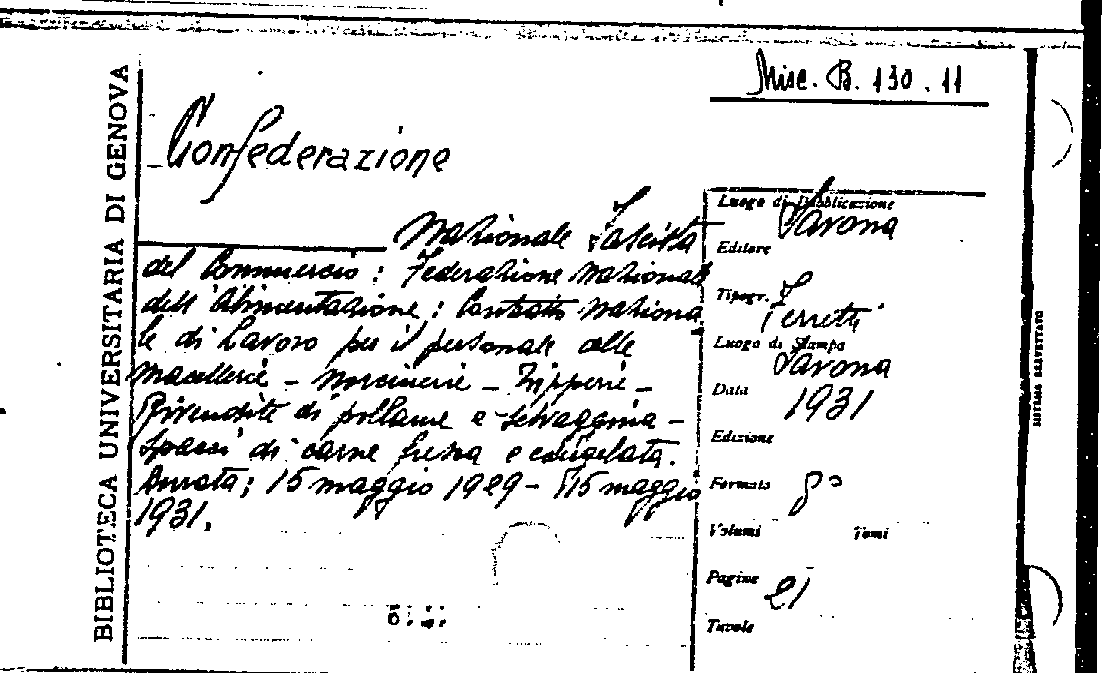 Misc. B. 130. 11
BIBLIOTECA UNIVERSITARIA DI GENOVA
Confederazione
Nazionale Fascista
del Commercio: Federazione Nazionale
dell'Alimentazione: Contratto Naziona
le di Lavoro per il personale delle
Macellerie - Norcinerie - Tripperie -
Rivendite di pollame e selvaggina -
Spacci di carne fresca e congelata.
Durata: 15 maggio 1929 - 15 maggio
1931.
Luogo di Pubblicazione Savona
Editore
Tipogr. Ferretti
Luogo di Stampa Savona
Data 1931
Edizione
Formato 8°
Volumi Tomi
Pagine 21
Tavole